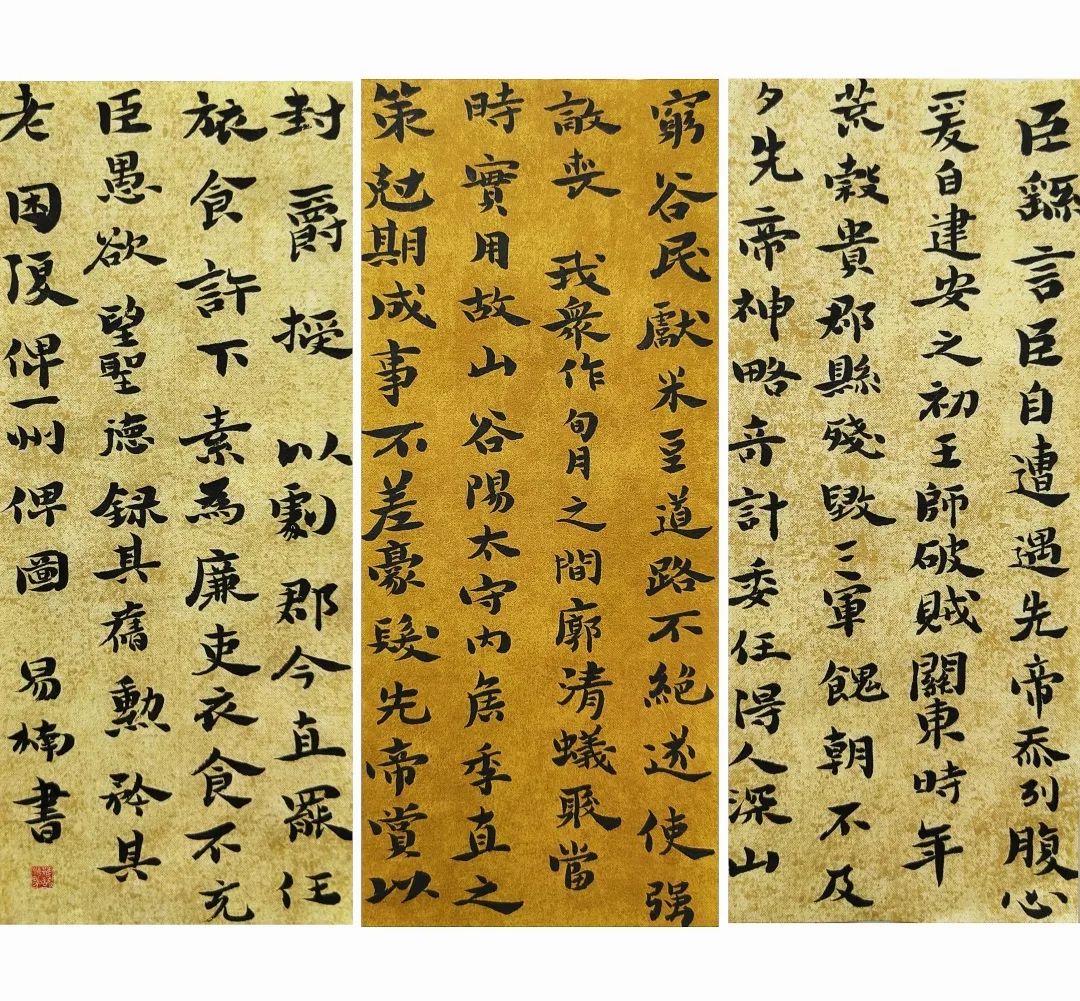 臣繇言臣自遭遇先帝忝列腹心
爰自建安之初王師破賊關東時年
荒穀貴郡縣殘毀三軍餽朝不及
夕先帝神略奇計委任得人深山
窮谷民獻米豆道路不絕遂使强
敵喪 我衆作旬月之間廓清蟻聚當
時實用故山谷陽太守内矦季直之
策尅期成事不差豪髮先帝賞以
封爵授以劇郡今直罷任
旅食許下素為廉吏衣食不充
臣愚欲望聖德録其舊勳矜其
老困復俾一州俾圖 易楠書